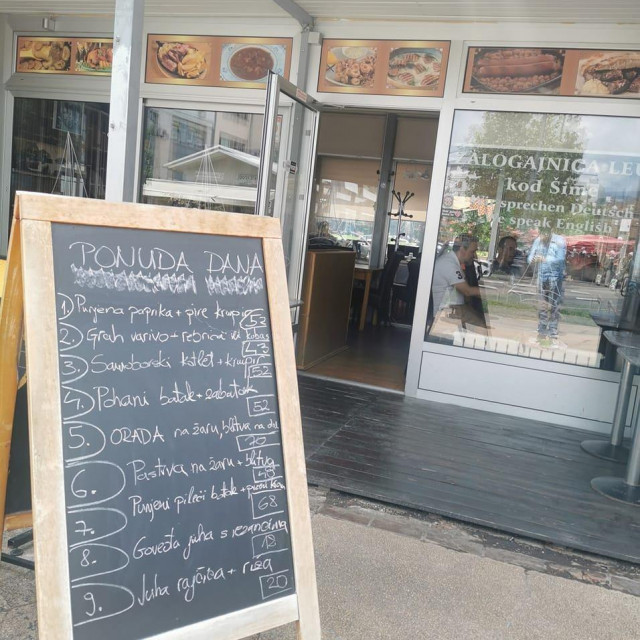 PONUDA DANA
1. Punjena paprika + pire krumpir 52
2. Grah varivo + rebrica ili kobas
3. Samoborski kotlet + krumpir 52
4. Pohani batak + zabatak 52
5. ORADA na žaru, blitva na dalm. 70
6. Pastrva na žaru + blitva
7. Punjeni pileći batak + pomm 68
8. Goveđa juha s rezancima 18
9. Juha rajčica + riža 20
ALOGAJNICA LEU
kod Šime
sprechen Deutsch
Speak English